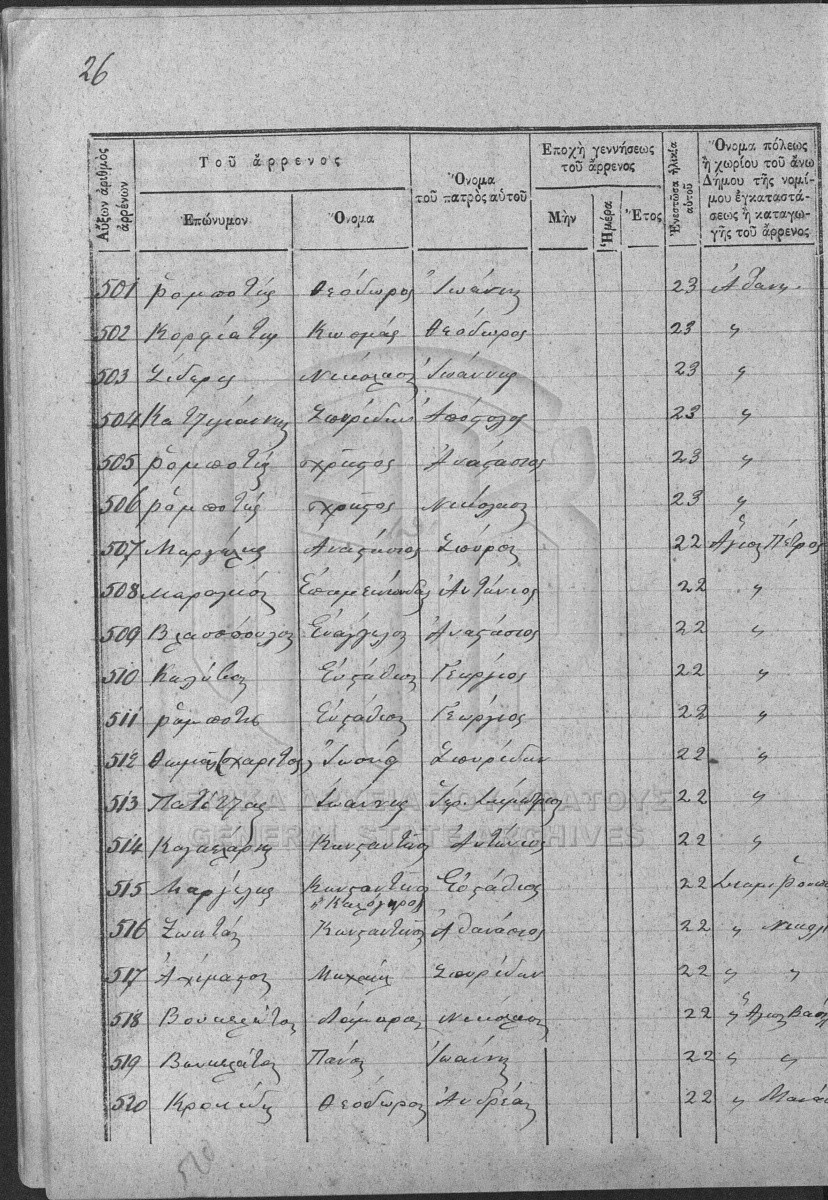 26
Αὔξων ἀριθμὸς ἀρρένων
Τοῦ ἄρρενος
Ἐπώνυμον
Ὄνομα
Ὄνομα
τοῦ πατρὸς αὐτοῦ
Ἐποχὴ γεννήσεως
τοῦ ἄρρενος
Μὴν
Ἡμέρα
Ἔτος
Ἐνεστῶσα ἡλικία
αὐτοῦ
Ὄνομα πόλεως
ἢ χωρίου τοῦ ἄνω
Δήμου τῆς νομί-
μου ἐγκαταστά-
σεως ἢ καταγω-
γῆς τοῦ ἄρρενος
501 Ῥομποτής Θεόδωρος Ἰωάννης 23 Ἀθάνι
502 Κορφιάτης Κοσμάς Θεόδωρος 23 "
503 Σίδερης Νικόλαος Ἰωάννης 23 "
504 Σπυρίδων Ἀπόστολος 23 "
505 Ῥομποτής Χρῆστος Ἀναστάσιος 23 "
506 Ῥομποτής Χρῆστος Νικόλαος 23 "
507 Μαργέλης Ἀναστάσιος Σπύρος 22 Ἅγιος Πέτρος
508 Ἐπαμεινώνδας Ἀντώνιος 22 "
509 Βλασσόπουλος Εὐάγγελος Ἀναστάσιος 22 "
510 Εὐστάθιος Γεώργιος 22 "
511 Ῥομποτής Εὐστάθιος Γεώργιος 22 "
512 Ἰωσήφ Σπυρίδων 22 "
513 Ἰωάννης 22 "
514 Κωνσταντῖνος Ἀντώνιος 22 "
515 Μαργέλης Κωνσταντῖνος Εὐστάθιος 22
ἢ Καλόγηρος
516 Κωνσταντῖνος Ἀθανάσιος 22 "
517 Μιχαήλ Σπυρίδων 22 " "
518 Βουκελάτος Νικόλαος 22 " Ἅγιος Βασίλ
519 Βουκελάτος Πάνος Ἰωάννης 22 " "
520 Κροκίδης Θεόδωρος Ἀνδρέας 22 "
520
ΓΕΝΙΚΑ ΑΡΧΕΙΑ ΤΟΥ ΚΡΑΤΟΥΣ
GENERAL STATE ARCHIVES